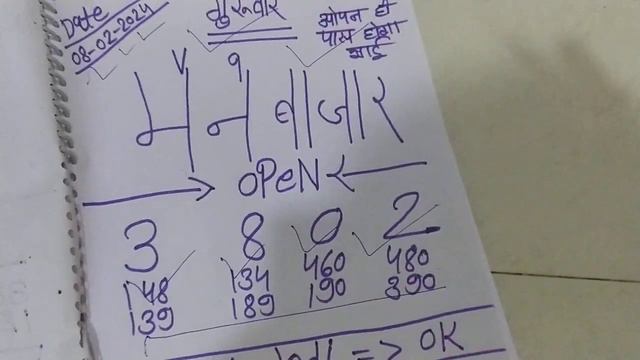 Date
08-02-2024
गुरूवार
ओपन ही
पास होगा
भाई
मेन बाजार
OPeN
3 8 0 2
148 134 460 480
139 189 190 390
=> OK